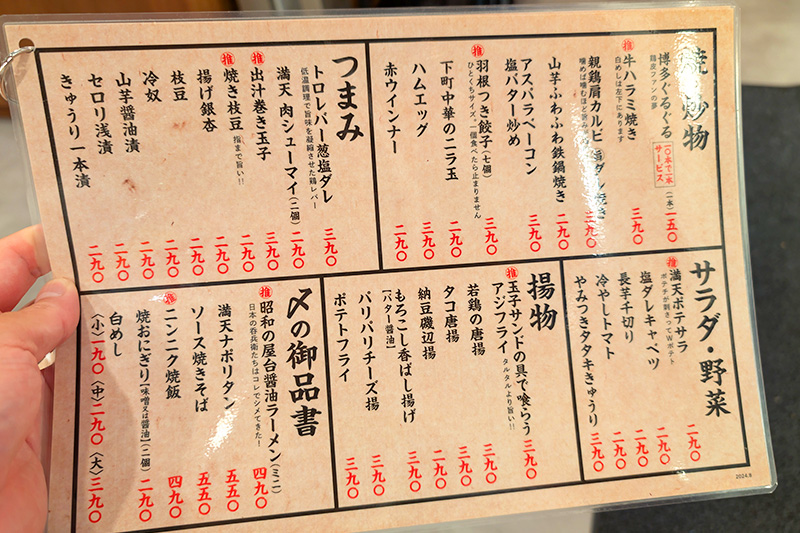 焼 炒物
博多ぐるぐる
鶏皮ファンの夢
一〇本で一本サービス
(一本)一五〇
推
牛ハラミ焼き
白めしは左下にあります
三九〇
親鶏肩カルビ
三九〇
山芋ふわふわ鉄鍋焼き
二九〇
アスパラベーコン
塩バター炒め
三九〇
推
羽根つき餃子(七個)
ひとくちサイズ、一個食べたら止まりません
三九〇
下町中華のニラ玉
二九〇
ハムエッグ
三九〇
赤ウインナー
二九〇
つまみ
トロレバー葱塩ダレ
低温調理で旨味を凝縮させた鶏レバー
三九〇
満天 肉シューマイ(二個)
二九〇
推
出汁巻き玉子
三九〇
推
焼き枝豆
指まで旨い!!
二九〇
揚げ銀杏
二九〇
枝豆
二九〇
冷奴
二九〇
山芋醤油漬
二九〇
セロリ浅漬
二九〇
きゅうり一本漬
二九〇
サラダ・野菜
推
満天ポテサラ
ポテチが刺さってWポテト
二九〇
塩ダレキャベツ
二九〇
長芋千切り
二九〇
冷やしトマト
二九〇
やみつきタタキきゅうり
三九〇
揚物
推
玉子サンドの具で喰らう
アジフライ
タルタルより旨い!!
三九〇
若鶏の唐揚
三九〇
タコ唐揚
三九〇
納豆磯辺揚
二九〇
もろこし香ばし揚げ
【バター醤油】
三九〇
パリパリチーズ揚
三九〇
ポテトフライ
三九〇
〆の御品書
推
昭和の屋台醤油ラーメン(ミニ)
日本の呑兵衛たちはコレでシメてきた!
四九〇
満天ナポリタン
五五〇
ソース焼きそば
五五〇
推
ニンニク焼飯
四九〇
焼おにぎり【味噌又は醤油】(二個)
二九〇
白めし
〈小〉一九〇 〈中〉二九〇 〈大〉三九〇
2024.8